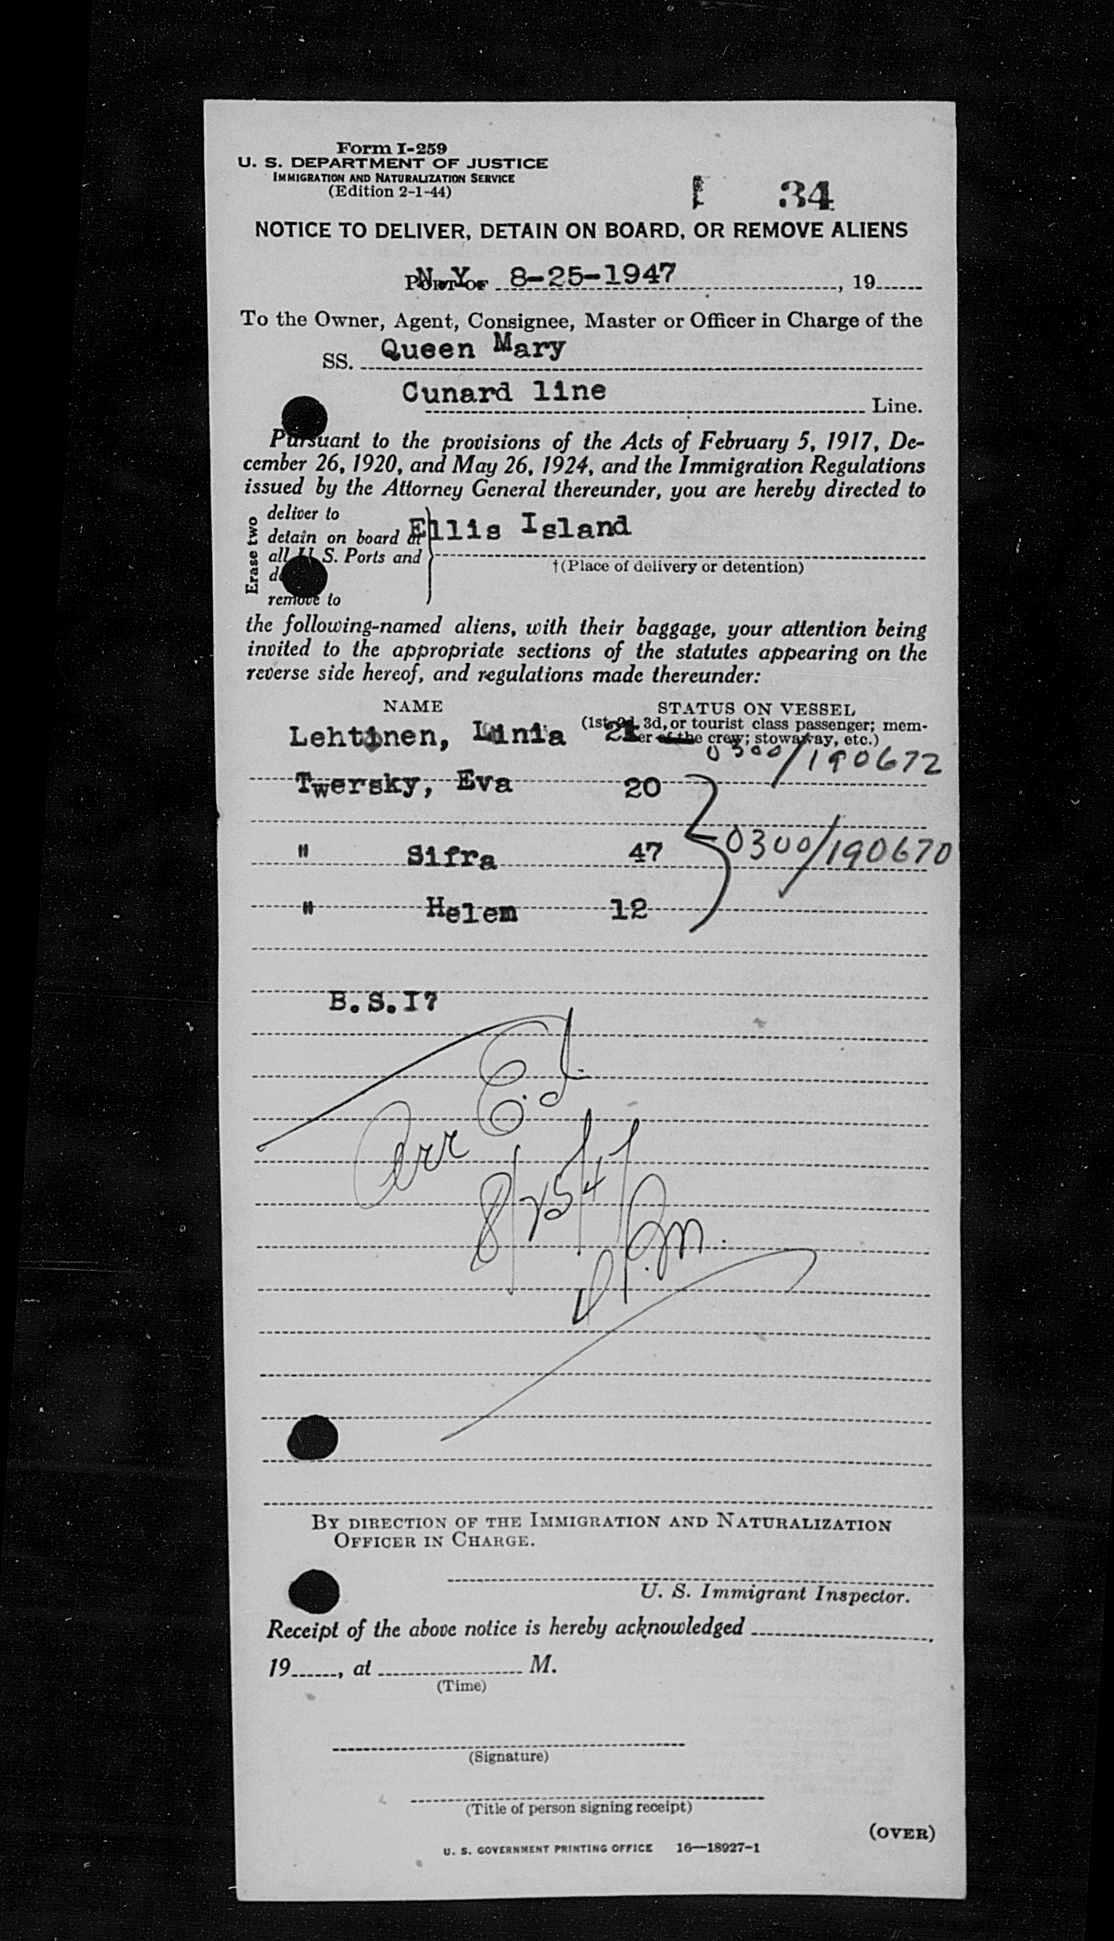 Form I-259
U. S. DEPARTMENT OF JUSTICE
IMMIGRATION AND NATURALIZATION SERVICE
(Edition 2-1-44)
34
NOTICE TO DELIVER, DETAIN ON BOARD, OR REMOVE ALIENS
PORT OF N.Y. 8-25-1947, 19
To the Owner, Agent, Consignee, Master or Officer in Charge of the
SS. Queen Mary
Cunard line Line.
Pursuant to the provisions of the Acts of February 5, 1917, De-
cember 26, 1920, and May 26, 1924, and the Immigration Regulations
issued by the Attorney General thereunder, you are hereby directed to
Erase two
deliver to
detain on board at Ellis Island
all U. S. Ports and
†(Place of delivery or detention)
remove to
the following-named aliens, with their baggage, your attention being
invited to the appropriate sections of the statutes appearing on the
reverse side hereof, and regulations made thereunder:
NAME STATUS ON VESSEL
(1st, 2d, 3d, or tourist class passenger; mem-
ber of the crew; stowaway, etc.)
Lehtinen, 21 0300/190672
Twersky, Eva 20
" Sifra 47 0300/190670
" Helen 12
B.S.I7
Arr E.I.
8/25/47
P.m.
BY DIRECTION OF THE IMMIGRATION AND NATURALIZATION
OFFICER IN CHARGE.
U. S. Immigrant Inspector.
Receipt of the above notice is hereby acknowledged
19, at M.
(Time)
(Signature)
(Title of person signing receipt)
(OVER)
U. S. GOVERNMENT PRINTING OFFICE 16—18927-1